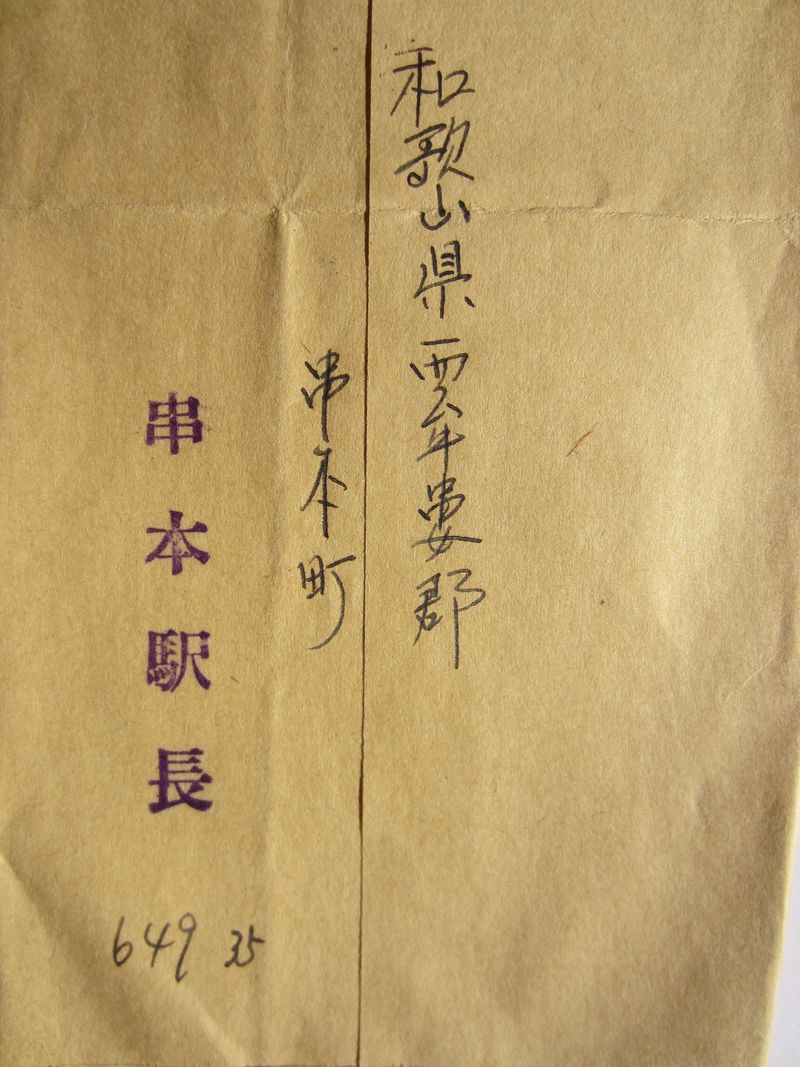 和歌山県西牟婁郡
串本町
串本駅長
649 35